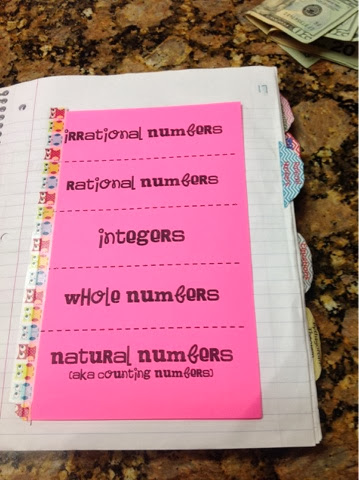 13
irrational numbers
rational numbers
integers
whole numbers
natural numbers
(aka counting numbers)
20